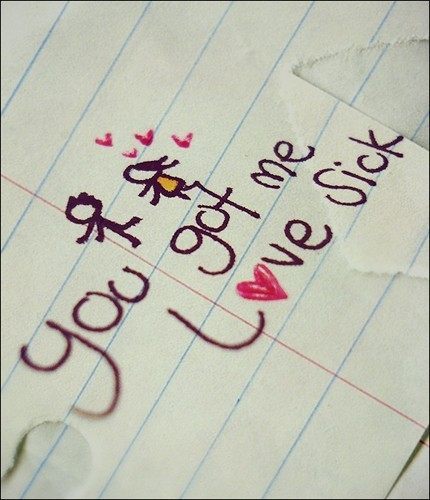 you got me
Love Sick